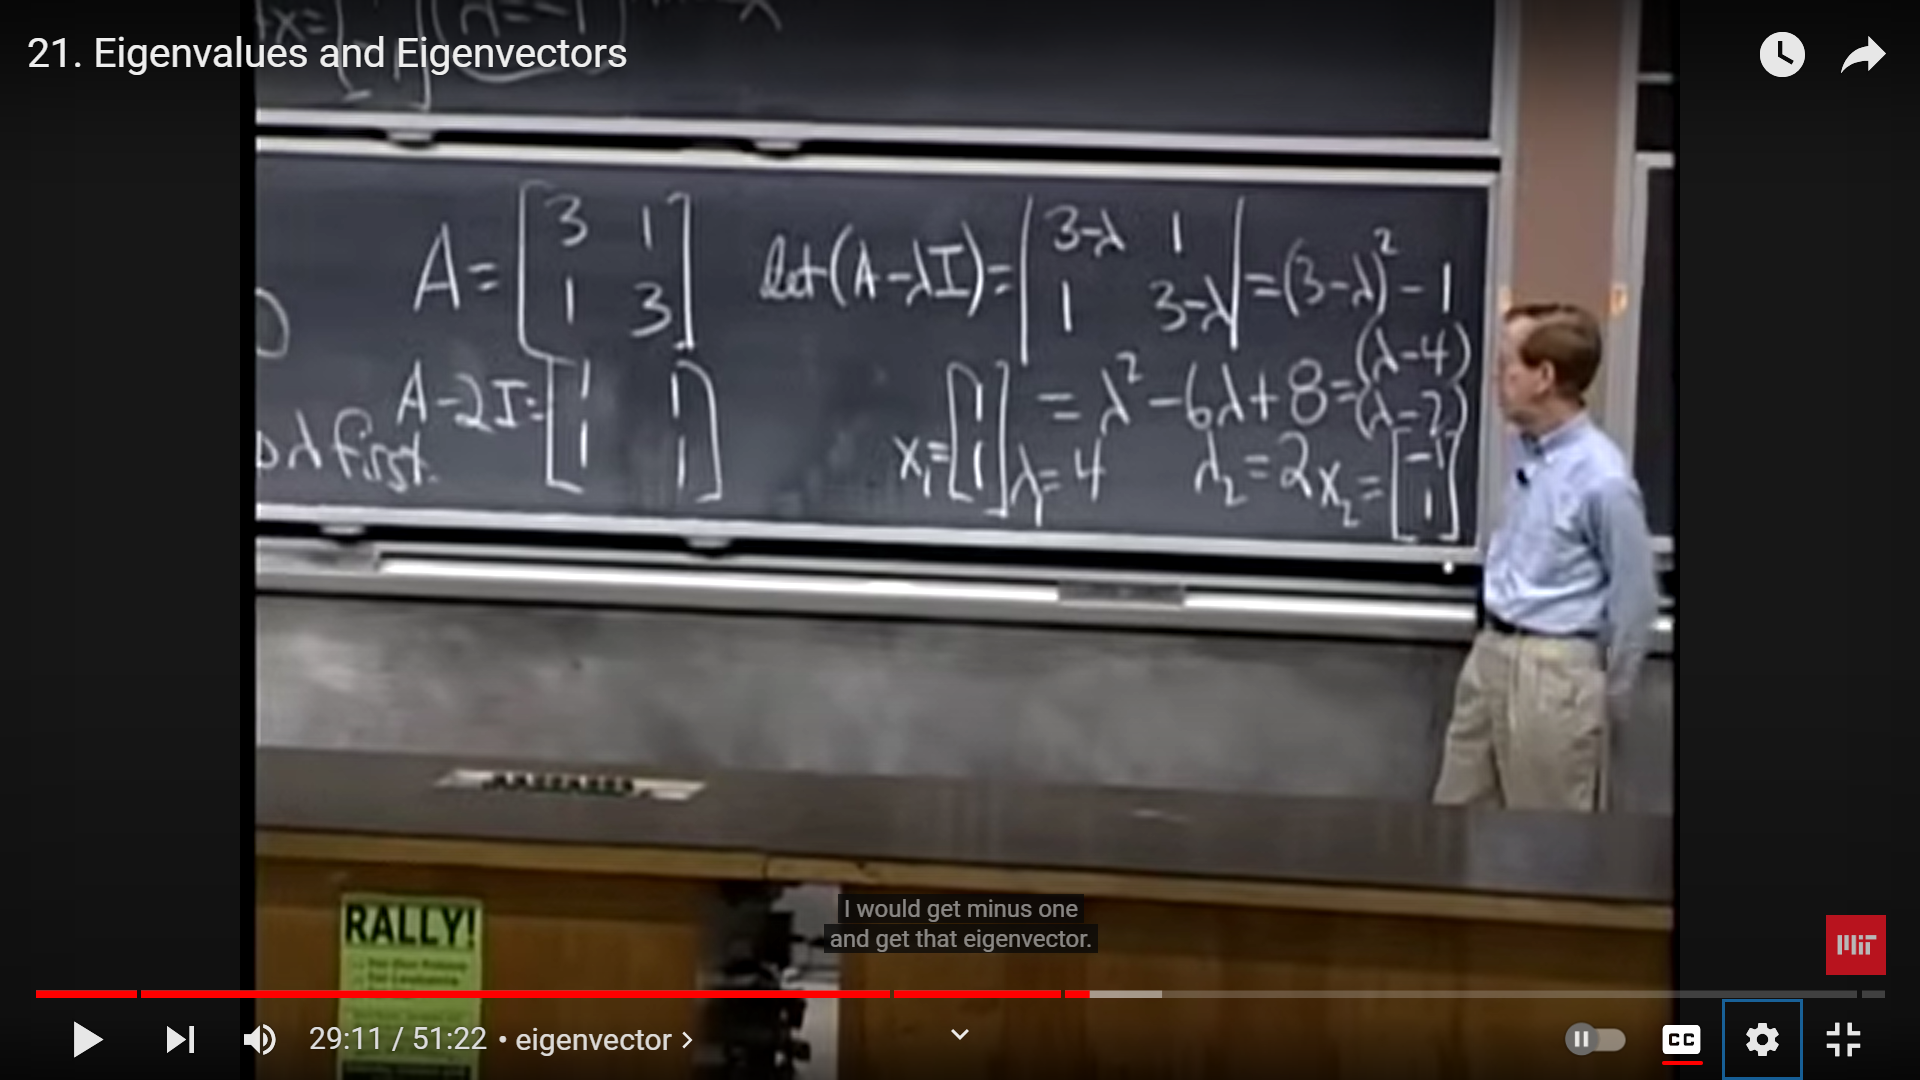 21. Eigenvalues and Eigenvectors
A = [3 1
1 3]
det(A-λI) = |3-λ 1
1 3-λ| = (3-λ)² - 1
= λ² - 6λ + 8 = (λ-4)(λ-2)
A-2I = [1 1
1 1]
λ first.
x₁ = [1
1] λ₁ = 4
λ₂ = 2 x₂ = [-1
1]
RALLY!
I would get minus one
and get that eigenvector.
MIT
29:11 / 51:22 • eigenvector >
CC